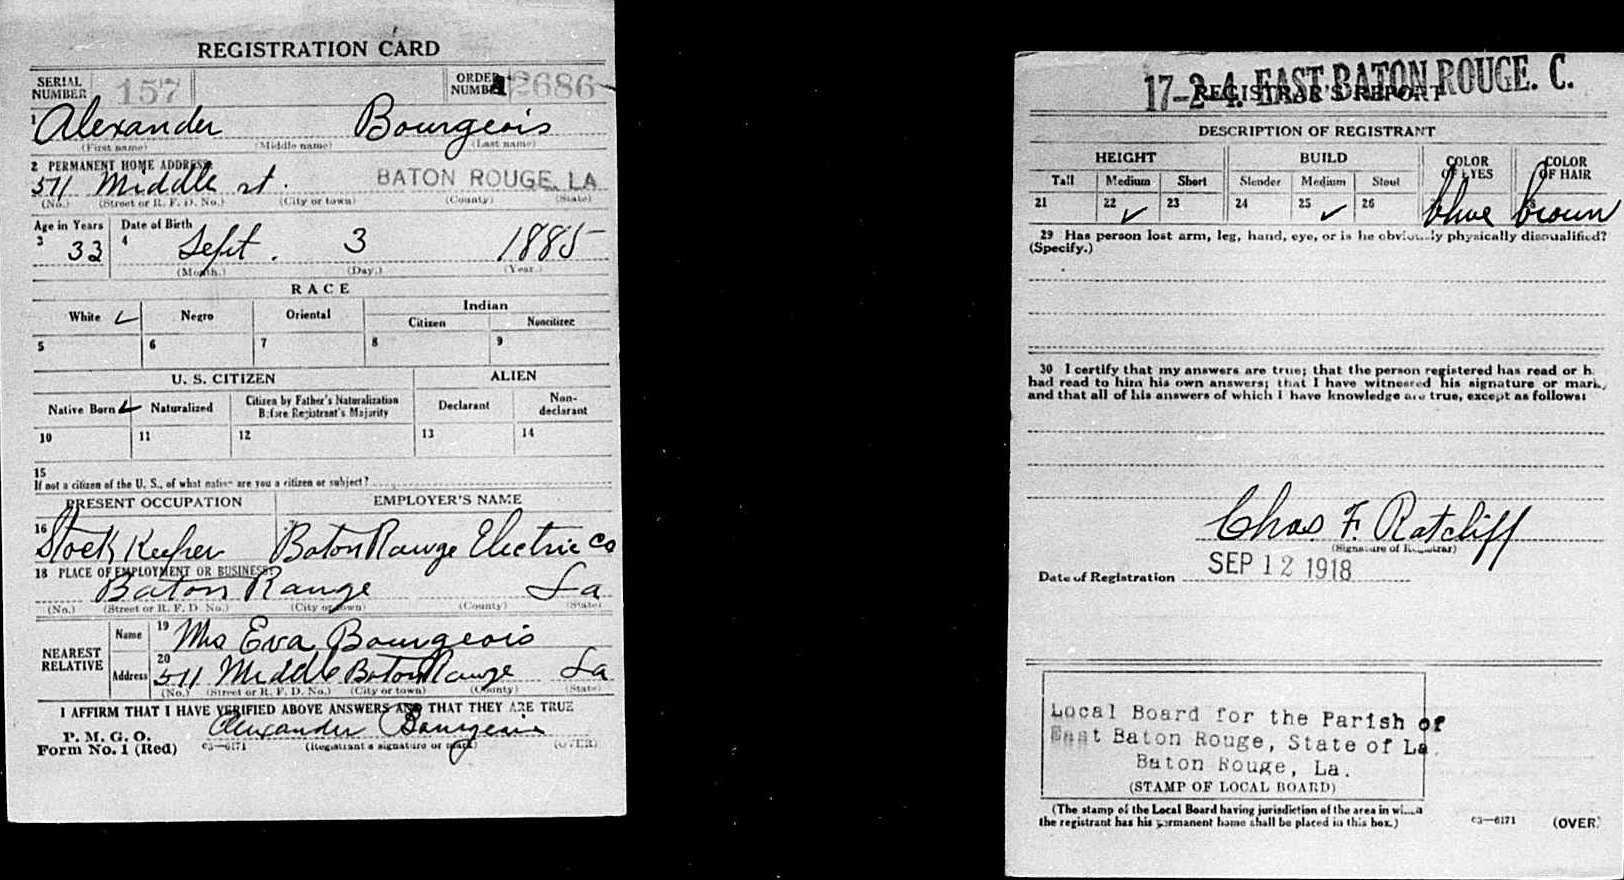 REGISTRATION CARD
SERIAL NUMBER 157 ORDER NUMBER 2686
1 Alexander Bourgeois
(First name) (Middle name) (Last name)
2 PERMANENT HOME ADDRESS
511 Middle st. BATON ROUGE, LA
(No.) (Street or R. F. D. No.) (City or town) (County) (State)
Age in Years Date of Birth
3 33 4 Sept. 3 1885
(Month.) (Day.) (Year.)
RACE
White ✓ Negro Oriental Indian
Citizen Noncitizen
5 6 7 8 9
U. S. CITIZEN ALIEN
Native Born ✓ Naturalized Citizen by Father's Naturalization Before Registrant's Majority Declarant Non-declarant
10 11 12 13 14
15
If not a citizen of the U. S., of what nation are you a citizen or subject?
PRESENT OCCUPATION EMPLOYER'S NAME
16 Stock Keeper Baton Rouge Electric Co
18 PLACE OF EMPLOYMENT OR BUSINESS:
Baton Rouge La
(No.) (Street or R. F. D. No.) (City or town) (County) (State)
NEAREST RELATIVE
Name 19 Mrs Eva Bourgeois
Address 20 511 Middle Baton Rouge La
(No.) (Street or R. F. D. No.) (City or town) (County) (State)
I AFFIRM THAT I HAVE VERIFIED ABOVE ANSWERS AND THAT THEY ARE TRUE
P. M. G. O.
Form No. 1 (Red) c3—6171 Alexander Bourgeois
(Registrant's signature or mark) (OVER)
17-2-4. EAST BATON ROUGE. C.
REGISTRAR'S REPORT
DESCRIPTION OF REGISTRANT
HEIGHT BUILD COLOR OF EYES COLOR OF HAIR
Tall Medium Short Slender Medium Stout
21 22 ✓ 23 24 25 ✓ 26 blue brown
29 Has person lost arm, leg, hand, eye, or is he obviously physically disqualified?
(Specify.)
30 I certify that my answers are true; that the person registered has read or h
had read to him his own answers; that I have witnessed his signature or mark,
and that all of his answers of which I have knowledge are true, except as follows:
Chas F. Ratcliff
(Signature of Registrar)
Date of Registration SEP 12 1918
Local Board for the Parish of
East Baton Rouge, State of La.
Baton Rouge, La.
(STAMP OF LOCAL BOARD)
(The stamp of the Local Board having jurisdiction of the area in which
the registrant has his permanent home shall be placed in this box.)
c3—6171 (OVER)